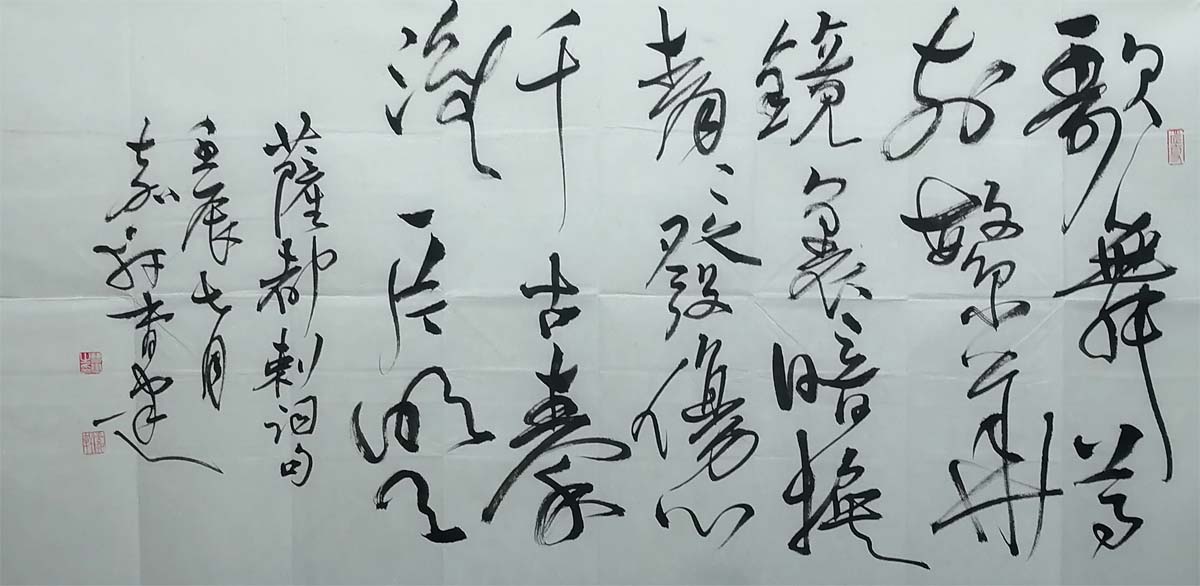 歌舞尊
前繁華
鏡裏暗換
青〻發傷心
千古秦
淮一片明月
薩都剌詞句
壬辰七月
嘉祥